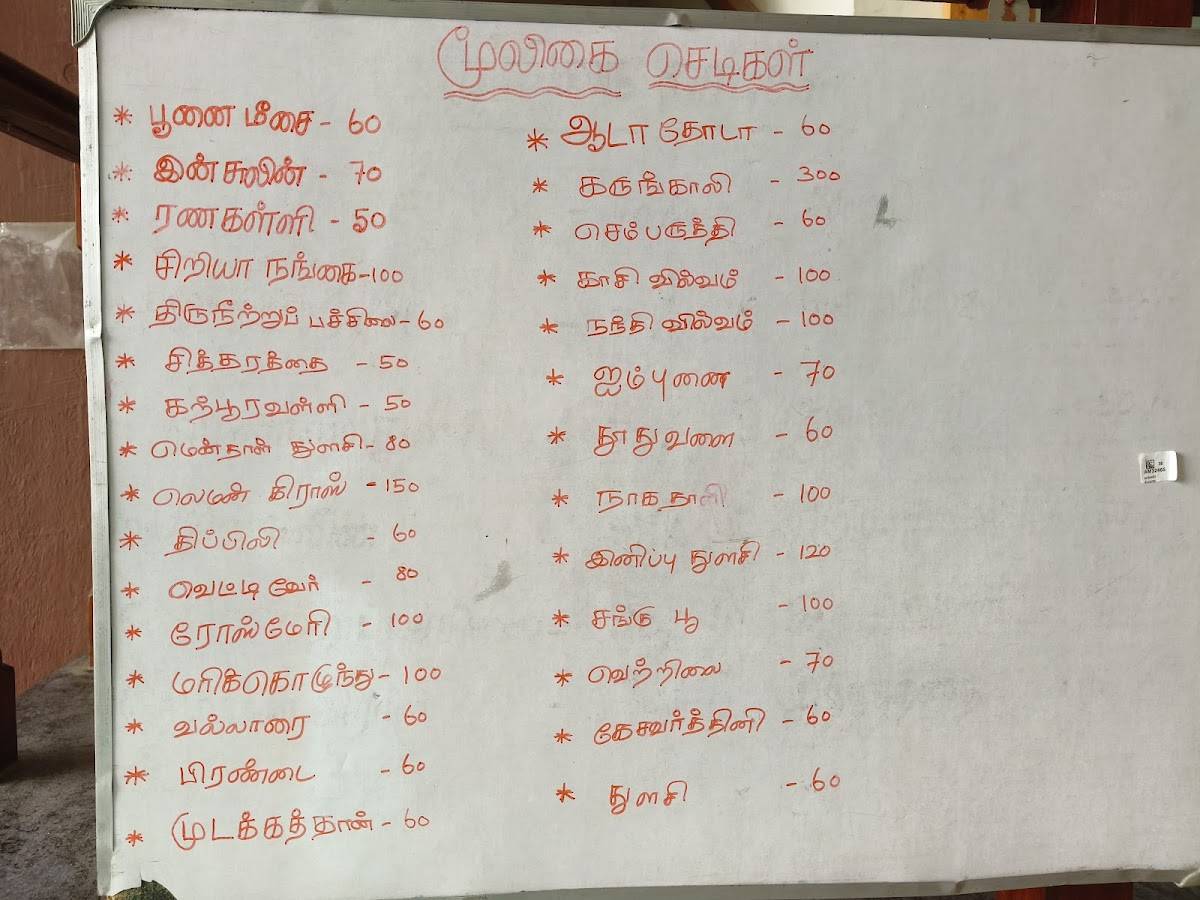 மூலிகை செடிகள்
* பூனை மீசை - 60
* இன்சுலின் - 70
* ரணகள்ளி - 50
* சிறியா நங்கை - 100
* திருநீற்றுப் பச்சிலை - 60
* சித்தரத்தை - 50
* கற்பூரவள்ளி - 50
* மென்தால் துளசி - 80
* லெமன் கிராஸ் - 150
* திப்பிலி - 60
* வெட்டி வேர் - 80
* ரோஸ்மேரி - 100
* மரிக்கொழுந்து - 100
* வல்லாரை - 60
* பிரண்டை - 60
* முடக்கத்தான் - 60
* ஆடா தோடா - 60
* கருங்காலி - 300
* செம்பருத்தி - 60
* காசி வில்வம் - 100
* நந்தி வில்வம் - 100
* ஐம்புணை - 70
* தூதுவளை - 60
* நாகதாளி - 100
* இனிப்பு துளசி - 120
* சங்கு பூ - 100
* வெற்றிலை - 70
* கேசவர்த்தினி - 60
* துளசி - 60